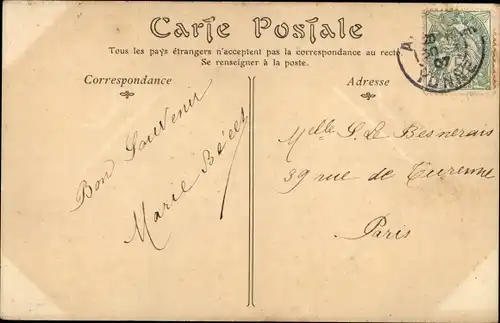 Carte Postale
Tous les pays étrangers n'acceptent pas la correspondance au recto.
Se renseigner à la poste.
Correspondance
Bon Souvenir
Marie
Adresse
Melle S. Le Besnerais
39 rue de Turenne
Paris